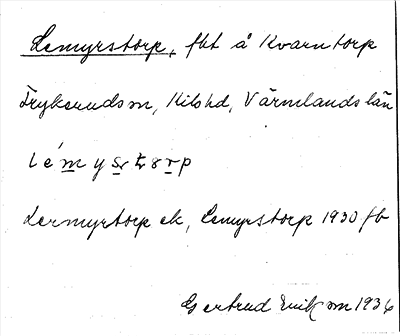 Lemyrstorp, fht å Kvarntorp
Frykeruds sn, Kils hd, Värmlands län
lémystorp
Lermyrtorp ek, Lemyrstorp 1930 fb
Gertrud 1936